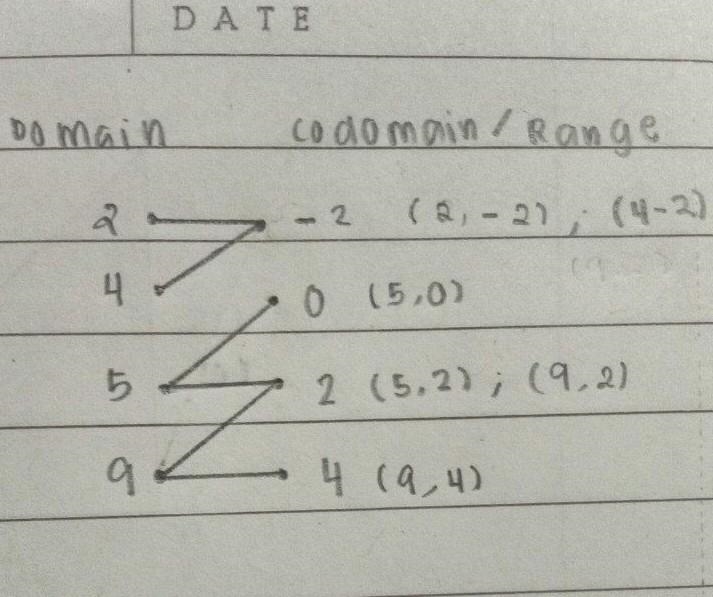 DATE
Domain codomain/Range
2 -2 (2,-2); (4-2)
4 0 (5,0)
5 2 (5,2); (9,2)
9 4 (9,4)